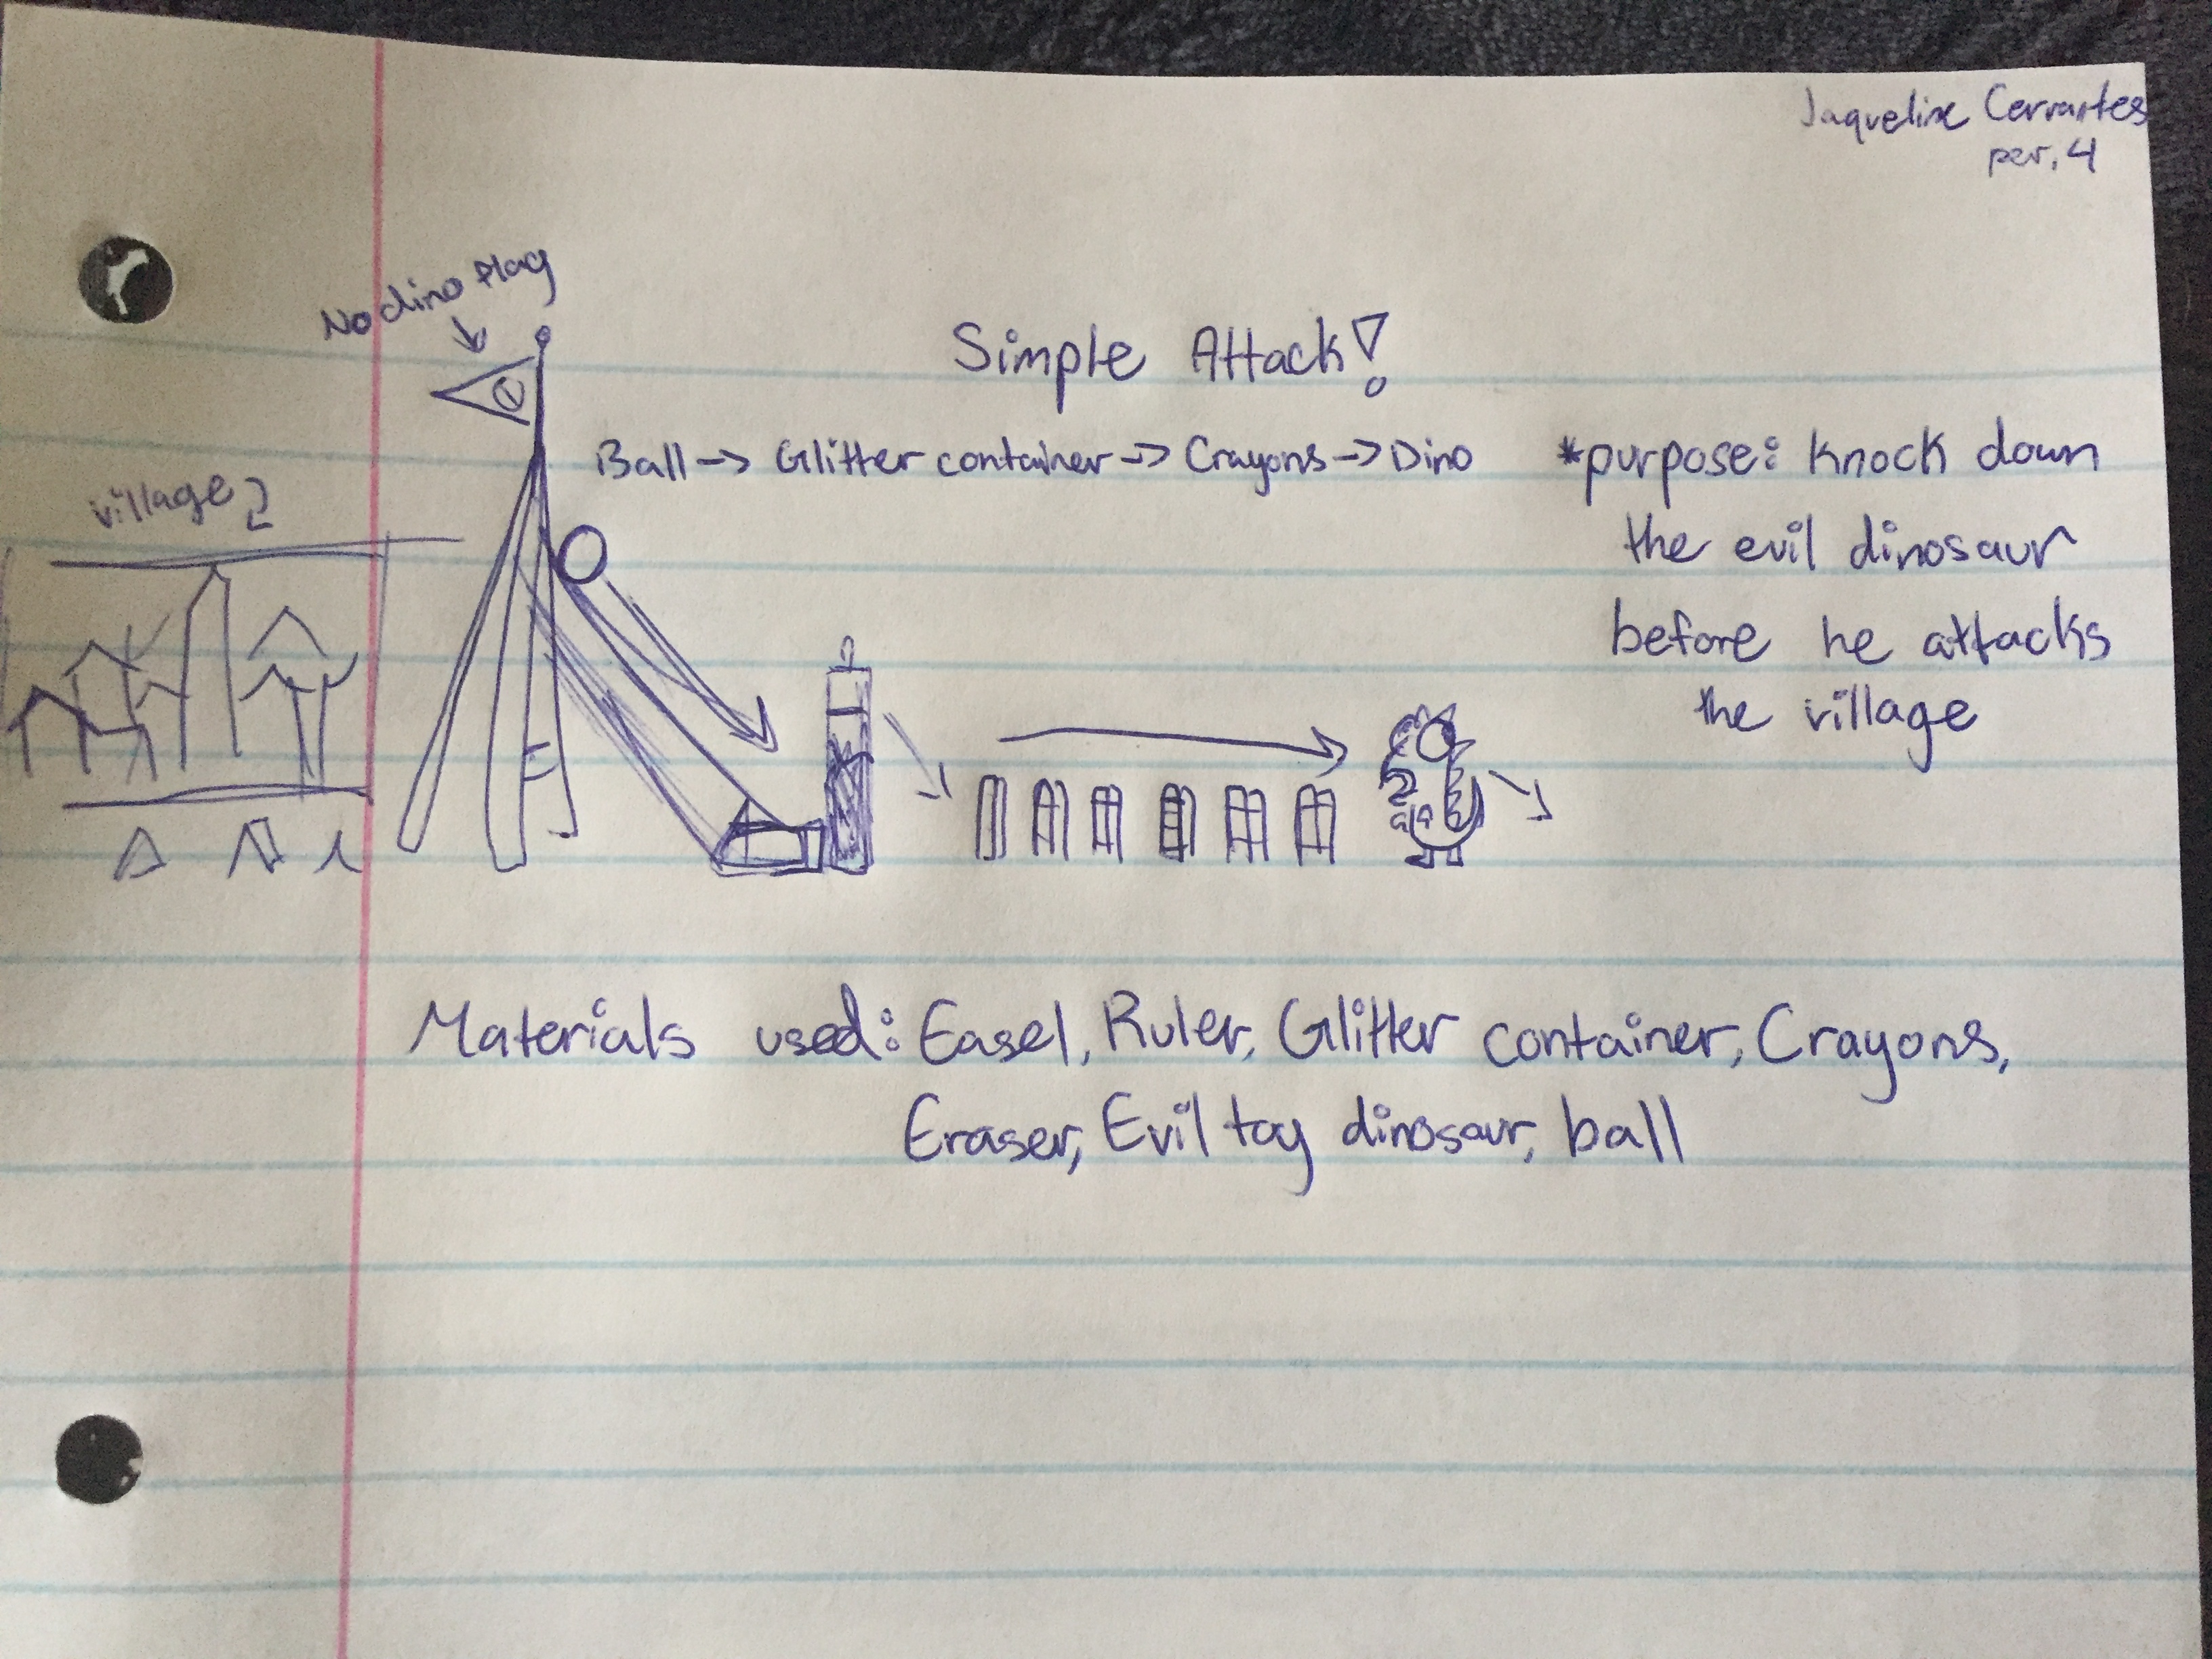 Jaqueline Cervantes
per, 4
No dino flag
Simple Attack!
Ball -> Glitter container -> Crayons -> Dino
*purpose: knock down
the evil dinosaur
before he attacks
the village
village
Materials used: Easel, Ruler, Glitter container, Crayons,
Eraser, Evil toy dinosaur, ball